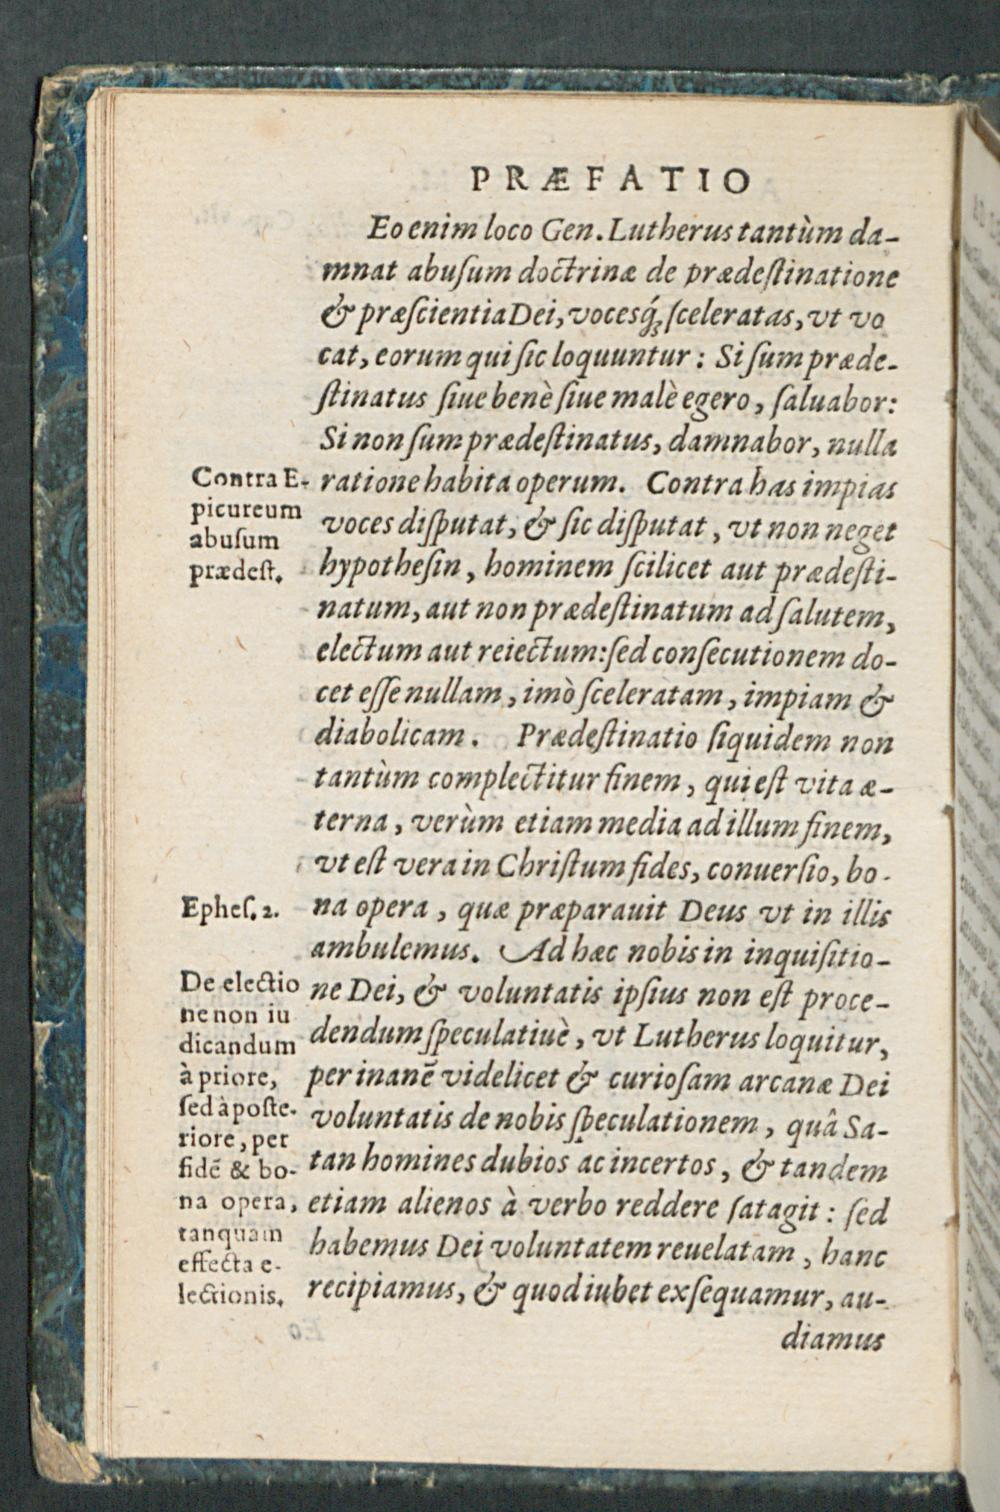 PRÆFATIO
Eo enim loco Gen. Lutherus tantùm da-
mnat abuſum doctrinæ de prædeſtinatione
& præſcientia Dei, vocesq́; ſceleratas, vt vo
cat, eorum qui ſic loquuntur: Si ſum præde-
ſtinatus ſiue benè ſiue malè egero, ſaluabor:
Si non ſum prædeſtinatus, damnabor, nulla
ratione habita operum. Contra has impias
voces diſputat, & ſic diſputat, vt non neget
hypotheſin, hominem ſcilicet aut prædeſti-
natum, aut non prædeſtinatum ad ſalutem,
electum aut reiectum: ſed conſecutionem do-
cet eſſe nullam, imò ſceleratam, impiam &
diabolicam. Prædeſtinatio ſiquidem non
tantùm complectitur finem, qui eſt vita æ-
terna, verùm etiam media ad illum finem,
vt eſt vera in Chriſtum fides, conuerſio, bo-
na opera, quæ præparauit Deus vt in illis
ambulemus. Ad hæc nobis in inquiſitio-
ne Dei, & voluntatis ipſius non eſt proce-
dendum ſpeculatiuè, vt Lutherus loquitur,
per inanē videlicet & curioſam arcanæ Dei
voluntatis de nobis ſpeculationem, quâ Sa-
tan homines dubios ac incertos, & tandem
etiam alienos à verbo reddere ſatagit: ſed
habemus Dei voluntatem reuelatam, hanc
recipiamus, & quod iubet exſequamur, au-
diamus
Contra E-
picureum
abuſum
prædeſt.
Epheſ. 2.
De electio
ne non iu
dicandum
à priore,
ſed à poſte-
riore, per
fidē & bo-
na opera,
tanquam
effecta e-
lectionis.